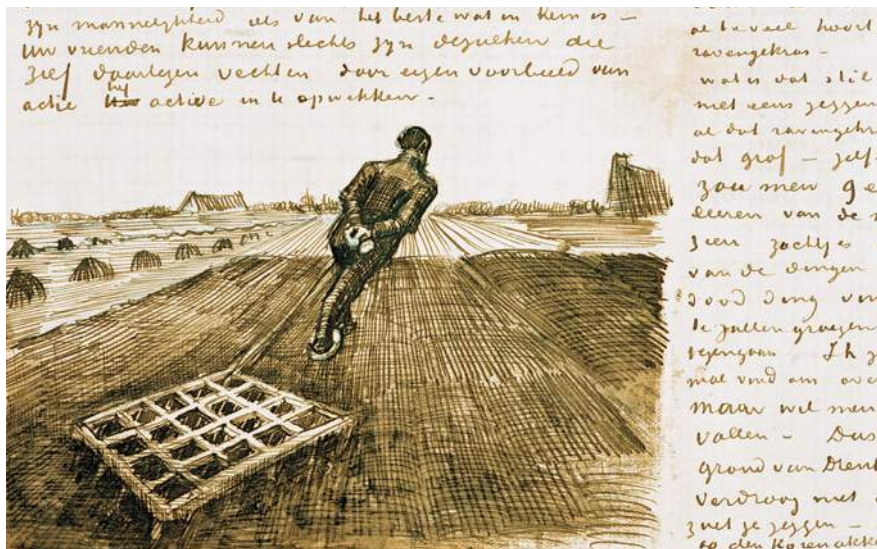 zyn mannelykheid als van het beste wat in hem is –
Uw vrienden kunnen slechts zyn degulken die
zelf daartegen vechten door eigen voorbeeld van
actie hy active in u opwekken –
al te veel hoort
ravengekras –
wat is dat stil
met eens zeggen
al dat ravengekr
dat grof – zelf
zou men ge
leeren van de
zien zachtjes
van de dingen
dood ding van
te zullen
tegengaan Ik
mal vind om over
maar wil men
vallen – Dus
grond van Drent
verdroog met
zoet je zeggen –
op den Korenakke